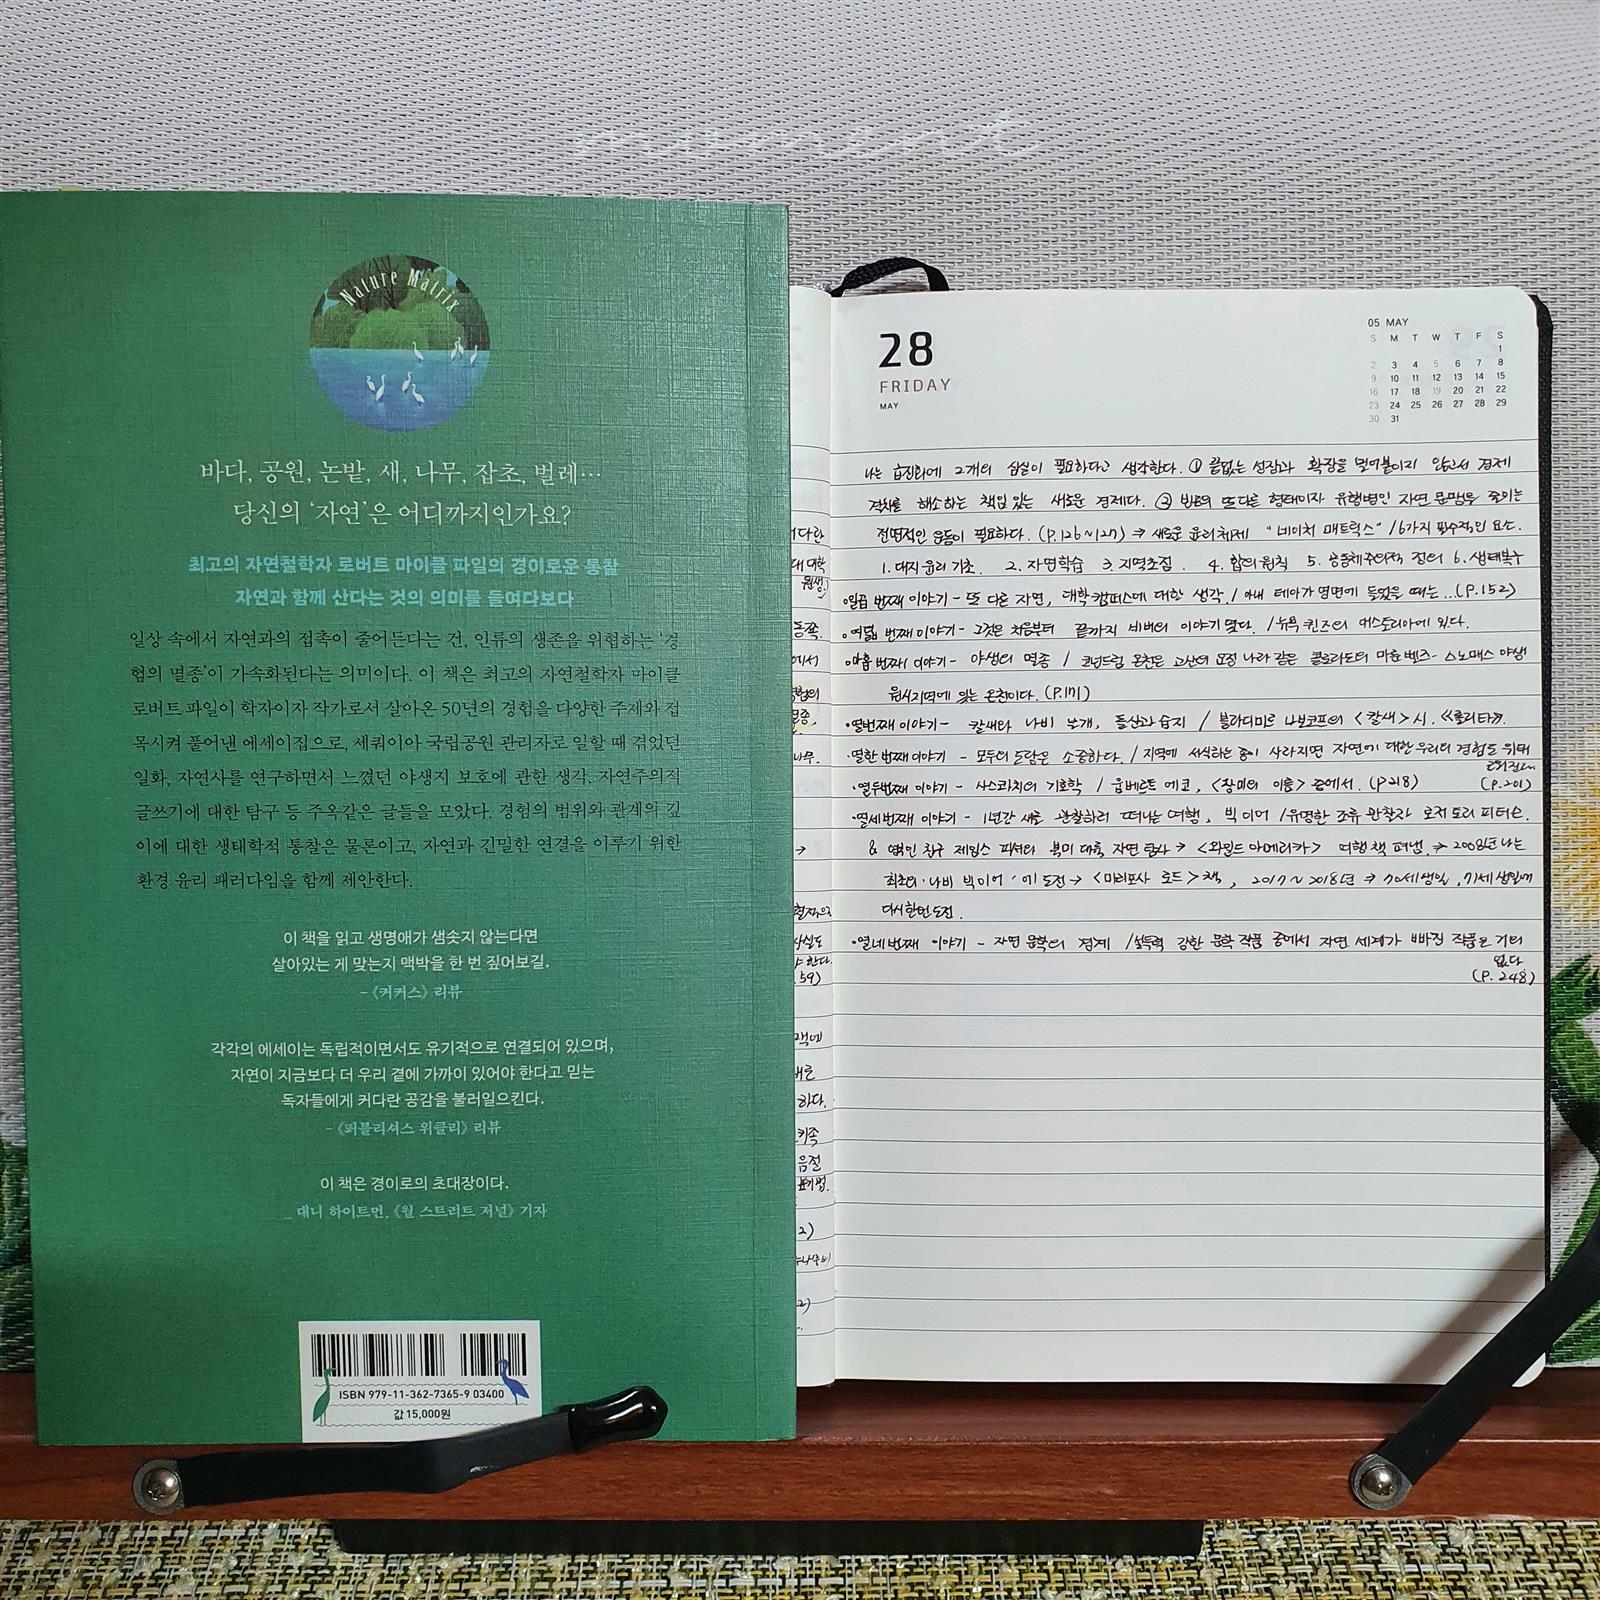 moment
Nature Matrix
바다, 공원, 논밭, 새, 나무, 잡초, 벌레…
당신의 ‘자연’은 어디까지인가요?
최고의 자연철학자 로버트 마이클 파일의 경이로운 통찰
자연과 함께 산다는 것의 의미를 들여다보다
일상 속에서 자연과의 접촉이 줄어든다는 건, 인류의 생존을 위협하는 ‘경
험의 멸종’이 가속화된다는 의미이다. 이 책은 최고의 자연철학자 마이클
로버트 파일이 학자이자 작가로서 살아온 50년의 경험을 다양한 주제와 접
목시켜 풀어낸 에세이집으로, 세쿼이아 국립공원 관리자로 일할 때 겪었던
일화, 자연사를 연구하면서 느꼈던 야생지 보호에 관한 생각, 자연주의적
글쓰기에 대한 탐구 등 주옥같은 글들을 모았다. 경험의 범위와 관계의 깊
이에 대한 생태학적 통찰은 물론이고, 자연과 긴밀한 연결을 이루기 위한
환경 윤리 패러다임을 함께 제안한다.
이 책을 읽고 생명애가 샘솟지 않는다면
살아있는 게 맞는지 맥박을 한 번 짚어보길.
-《커커스》 리뷰
각각의 에세이는 독립적이면서도 유기적으로 연결되어 있으며,
자연이 지금보다 더 우리 곁에 가까이 있어야 한다고 믿는
독자들에게 커다란 공감을 불러일으킨다.
-《퍼블리셔스 위클리》 리뷰
이 책은 경이로의 초대장이다.
_ 대니 하이트먼, 《월 스트리트 저널》 기자
ISBN 979-11-362-7365-9 03400
값 15,000원
28
FRIDAY
MAY
05 MAY
S M T W T F S
1
2 3 4 5 6 7 8
9 10 11 12 13 14 15
16 17 18 19 20 21 22
23 24 25 26 27 28 29
30 31
나는 2개의 필요하다고 생각한다. ① 끝없는 성장과 확장을 밀어붙이지 않으면서 경제
격차를 해소하는 책임 있는 새로운 경제다. ② 또 다른 형태이자 유행병인 자연 문맹을 줄이는
전면적인 운동이 필요하다. (P.126~127) → 새로운 윤리체제 "네이처 매트릭스" / 6가지 필수적인 요소.
1. 대지 윤리 기초. 2. 자연학습 3. 지역초점. 4. 합의 원칙 5. 공동체주의적 정의 6. 생태복구
·일곱 번째 이야기 - 또 다른 자연, 대학 캠퍼스에 대한 생각. / 아내 테아가 영면에 들었을 때는...(P.152)
·여덟 번째 이야기 - 그것은 처음부터 끝까지 비버의 이야기였다. / 뉴욕 퀸즈의 애스토리아에 있다.
·아홉 번째 이야기 - 야생의 멸종 / 코넌드럼 온천은 고산의 요정 나라 같은 콜로라도의 마룬 벨즈- 스노매스 야생
원시지역에 있는 온천이다. (P.171)
·열번째 이야기 - 칼새와 나비 날개, 등산과 습지 / 블라디미르 나보코프의 <칼새> 시. 《롤리타》.
·열한 번째 이야기 - 모두의 도감은 소중하다. / 지역에 서식하는 종이 사라지면 자연에 대한 우리의 경험도 위태
로워진다. (P.201)
·열두번째 이야기 - 사스콰치의 기호학 / 움베르토 에코, <장미의 이름> 중에서. (P218)
·열세번째 이야기 - 1년간 새를 관찰하러 떠나는 여행, 빅 이어 / 유명한 조류 관찰자 로저 토리 피터슨.
& 영국인 친구 제임스 피셔의 북미 대륙 자연 탐사 → <와일드 아메리카> 여행책 펴냄. → 2008년 나는
최초의 '나비 빅 이어'에 도전 → <마리포사 로드> 책, 2017~2018년 → 70세 생일, 71세 생일에
다시한번 도전.
·열네번째 이야기 - 자연 문학의 경계 / 설득력 강한 문학 작품 중에서 자연 세계가 빠진 작품은 거의
없다
(P.248)